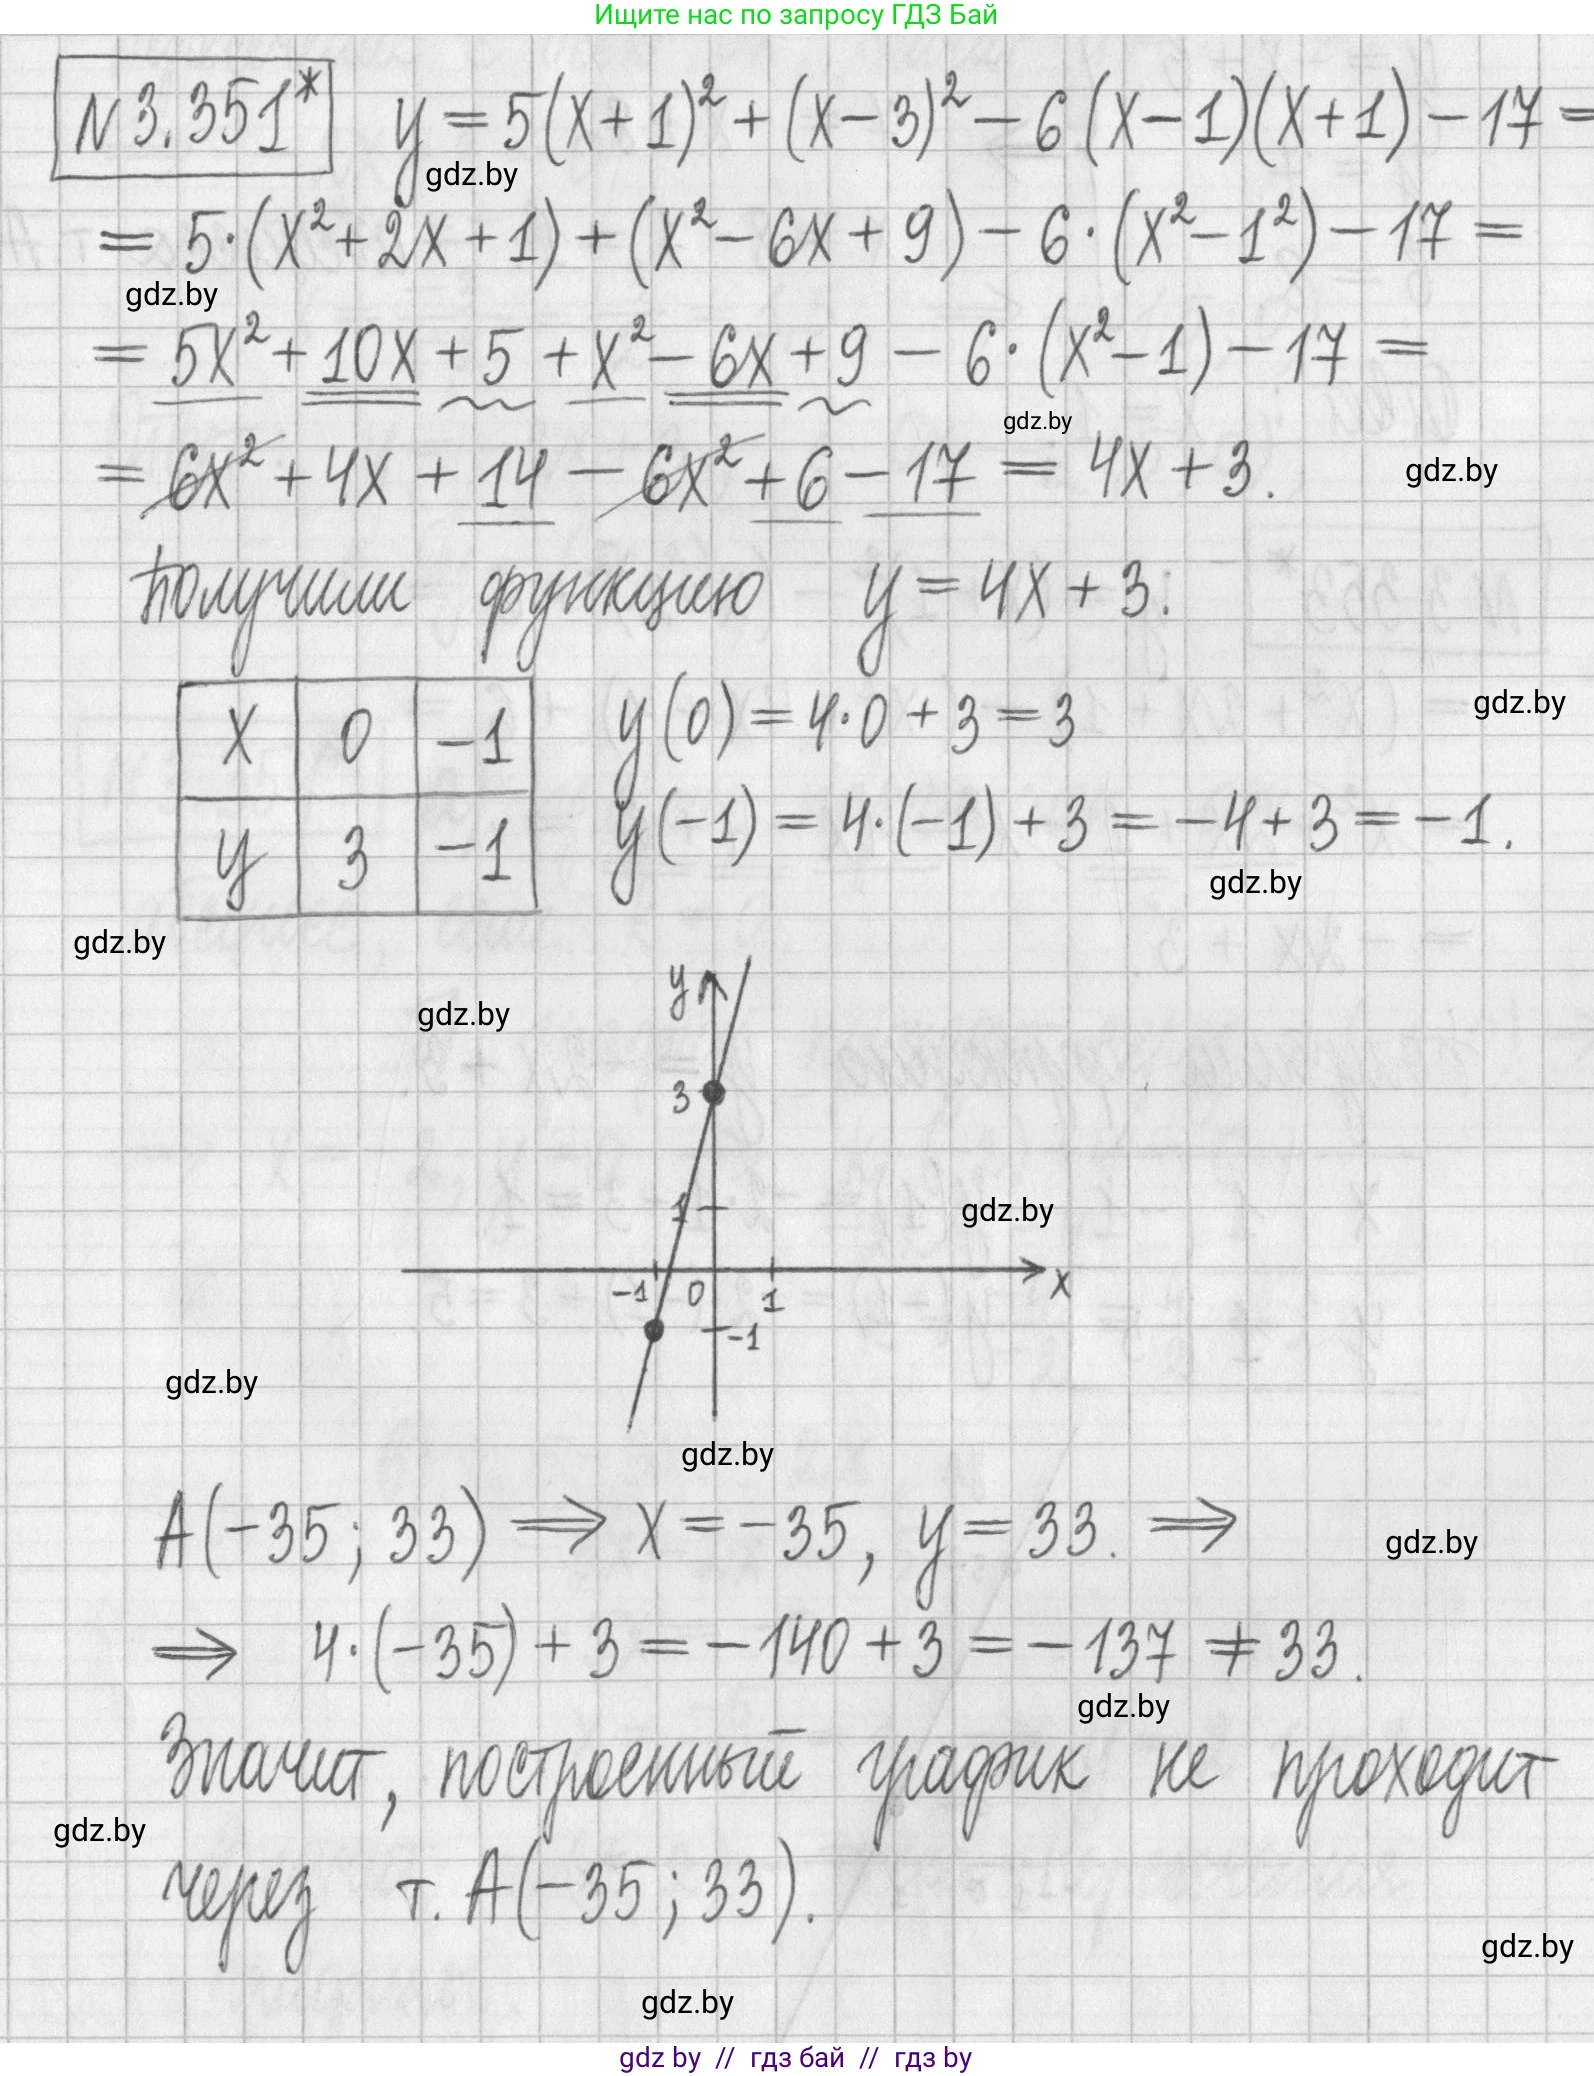 Ищите нас по запросу ГДЗ Бай
N 3.351* y = 5(x+1)² + (x-3)² - 6(x-1)(x+1) - 17 =
gdz.by
= 5·(x²+2x+1) + (x²-6x+9) - 6·(x²-1²) - 17 =
gdz.by
= 5x² + 10x + 5 + x² - 6x + 9 - 6·(x²-1) - 17 =
gdz.by
= 6x² + 4x + 14 - 6x² + 6 - 17 = 4x + 3.
gdz.by
Получили функцию y = 4x + 3:
x 0 -1 y(0) = 4·0 + 3 = 3
gdz.by
y 3 -1 y(-1) = 4·(-1) + 3 = -4 + 3 = -1.
gdz.by
gdz.by
y
gdz.by
3
1
gdz.by
-1 0 1 x
-1
gdz.by
gdz.by
A(-35; 33) ⟹ x = -35, y = 33. ⟹
gdz.by
⟹ 4·(-35) + 3 = -140 + 3 = -137 ≠ 33.
gdz.by
Значит, построенный график не проходит
gdz.by
через т. A(-35; 33).
gdz.by
gdz.by
gdz by // гдз бай // гдз by